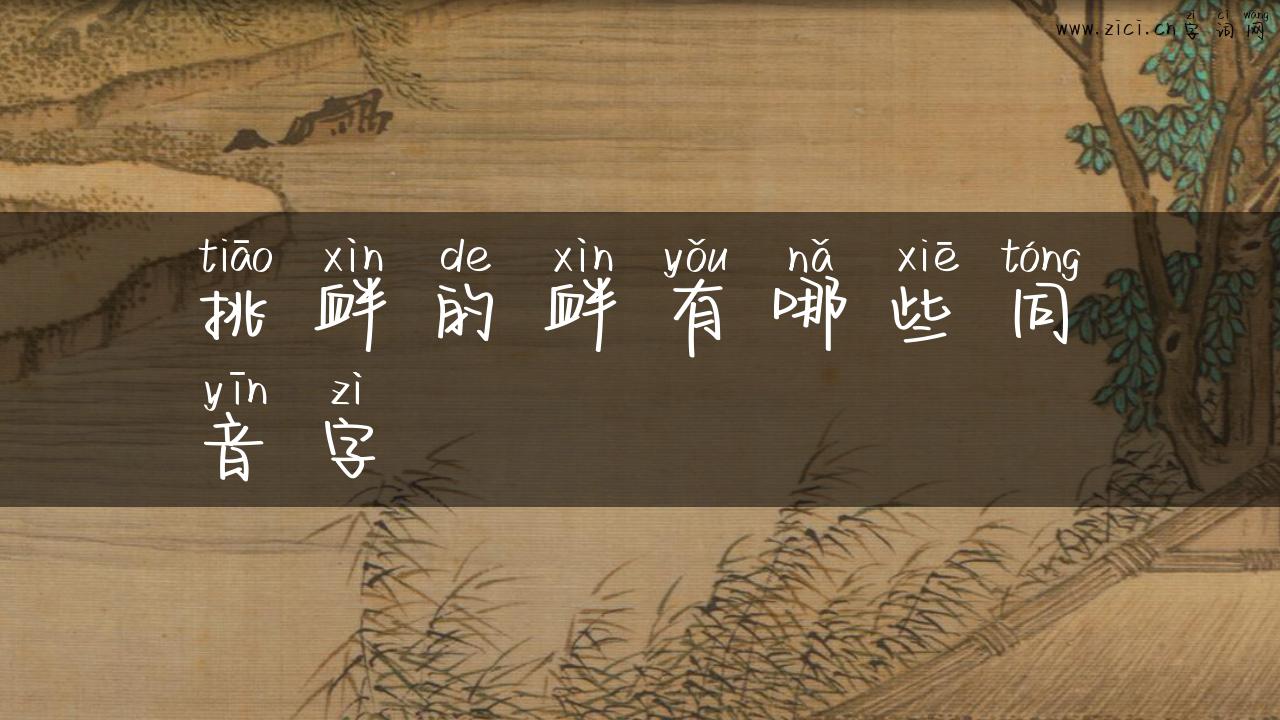 zì cí wǎng
www.zici.cn字词网
tiāo xìn de xìn yǒu nǎ xiē tóng
挑衅的衅有哪些同
yīn zì
音字